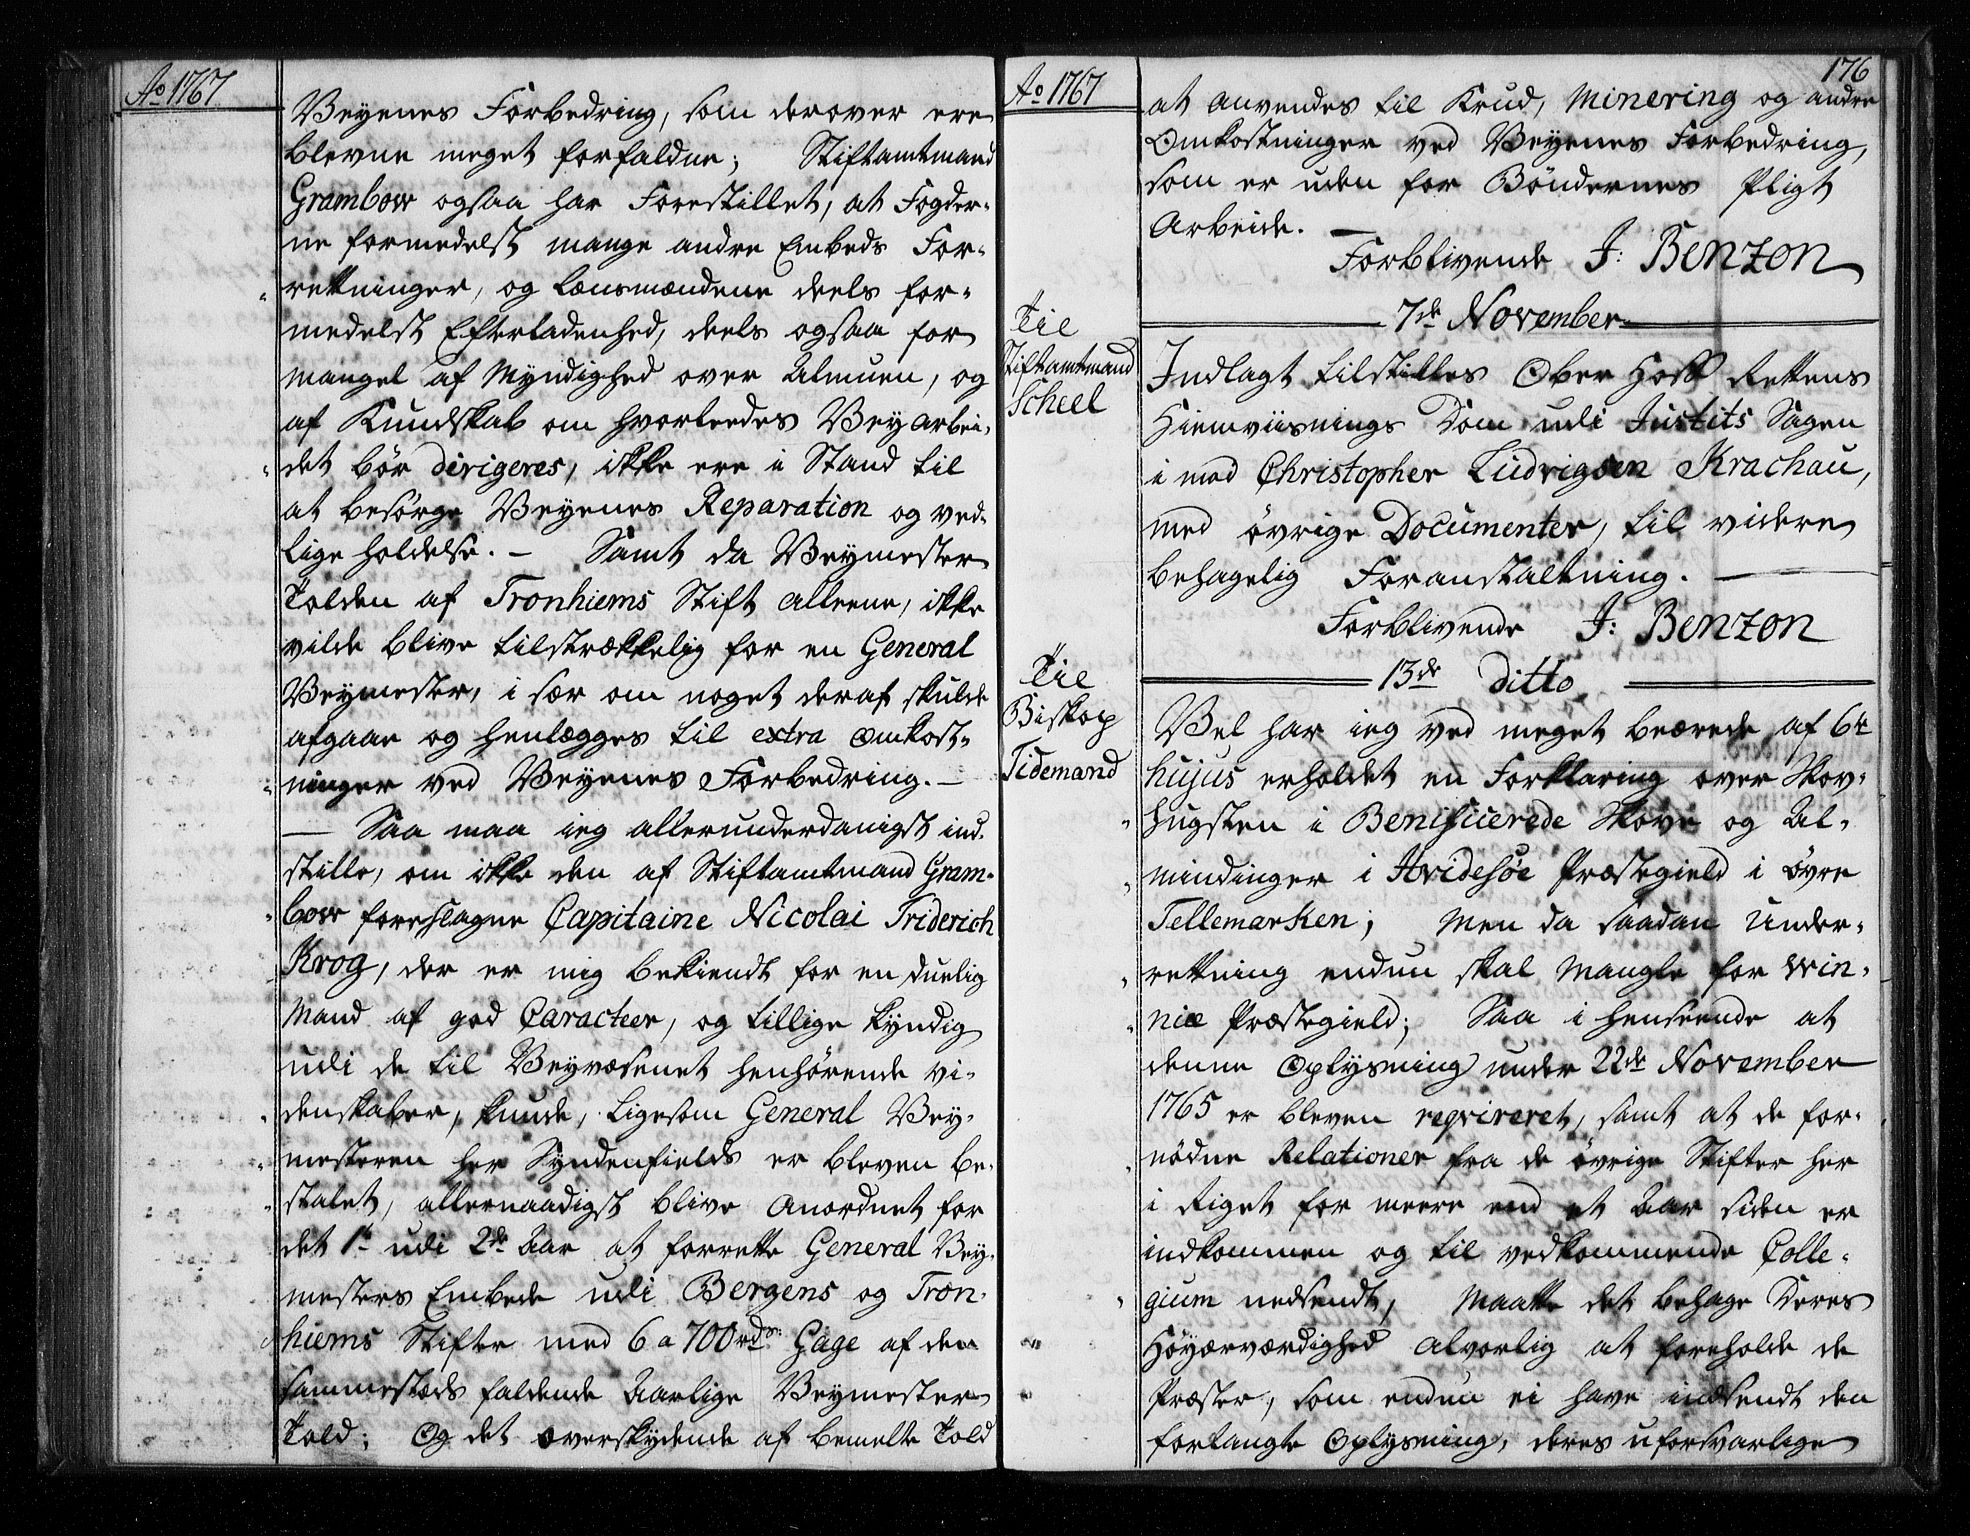 Ao 1767
Veyenes Forbedring, som derover ere
blevne meget forfaldne; Stiftamtmand
Grambow ogsaa har Forestillet, at Fogder-
ne formedelst mange andre Embeds For-
retninger, og Lænsmændene deels for-
medelst Efterladenhed, deels ogsaa for
mangel af Myndighed over Almuen, og
af Kundskab om hvorleedes Vey arbei-
det bör dirigeres, ikke ere i Stand til
at besörge Veyenes Reparation og ved-
lige holdelse. - Samt da Veymester
Tolden af Tronhiems Stift alleene, ikke
vilde blive tilstrækkelig for en General
Veymester, i sær om noget deraf skulde
afgaae og henlægges til extra omkost-
ninger ved Veyenes Forbedring. -
- Saa maa ieg allerunderdanigst ind-
stille, om ikke den af Stiftamtmand Gram-
bow foreslagne Capitaine Nicolai Friderich
Krog, der er mig bekiendt for en duelig
Mand af god Caracteer, og tillige kyndig
udi de til Veyvæsenet henhørende vi-
denskaber, kunde, ligesom General Vey-
mesteren her Syndenfields er bleven be-
stalet, allernaadigst blive anordnet for
det 1te udi 2de Aar at forrette General Vey-
mesters Embede udi Bergens og Tron-
hiems Stifter med 6 a 700 rdr Gage af den
sammestæds faldende Aarlige Veymester
Told; Og det overskydende af bemelte Told
Ao 1767
176
at anvendes til Krud, Minering og andre
Omkostninger ved Veyenes Forbedring,
som er uden for Böndernes Pligt
Arbeide. -
Forblivende J: Benzon
7de November
Til
Stiftamtmand
Scheel
Indlagt tilstilles Ober Hoff Rettens
Hiemviisnings Dom udi Justits Sagen
i mod Christopher Ludvigsen Krachau,
med övrige Documenter, til videre
behagelig Foranstaltning. -
Forblivende J: Benzon
13de ditto
Til
Biskop
Tidemand
Vel har ieg ved meget beærede af 6te
hujus erholdet en Forklaring over Skov-
hugsten i Benificerede Skove og Al-
mindinger i Hvidesöe Præstegield i övre
Tellemarken; Men da saadan Under-
retning endnu skal mangle for Win-
nie Præstegield; Saa i henseende at
denne Oplysning under 22de November
1765 er bleven reqvireret, samt at de for-
nödne Relationer fra de övrige Stifter her
i Riget for meere end et Aar siden er
indkommen og til vedkommende Colle-
gium nedsendt, Maatte det behage Deres
Höyærværdighed alvorlig at foreholde de
Præster, som endnu ei have indsendt den
forlangte Oplysning, deres uforsvarlige